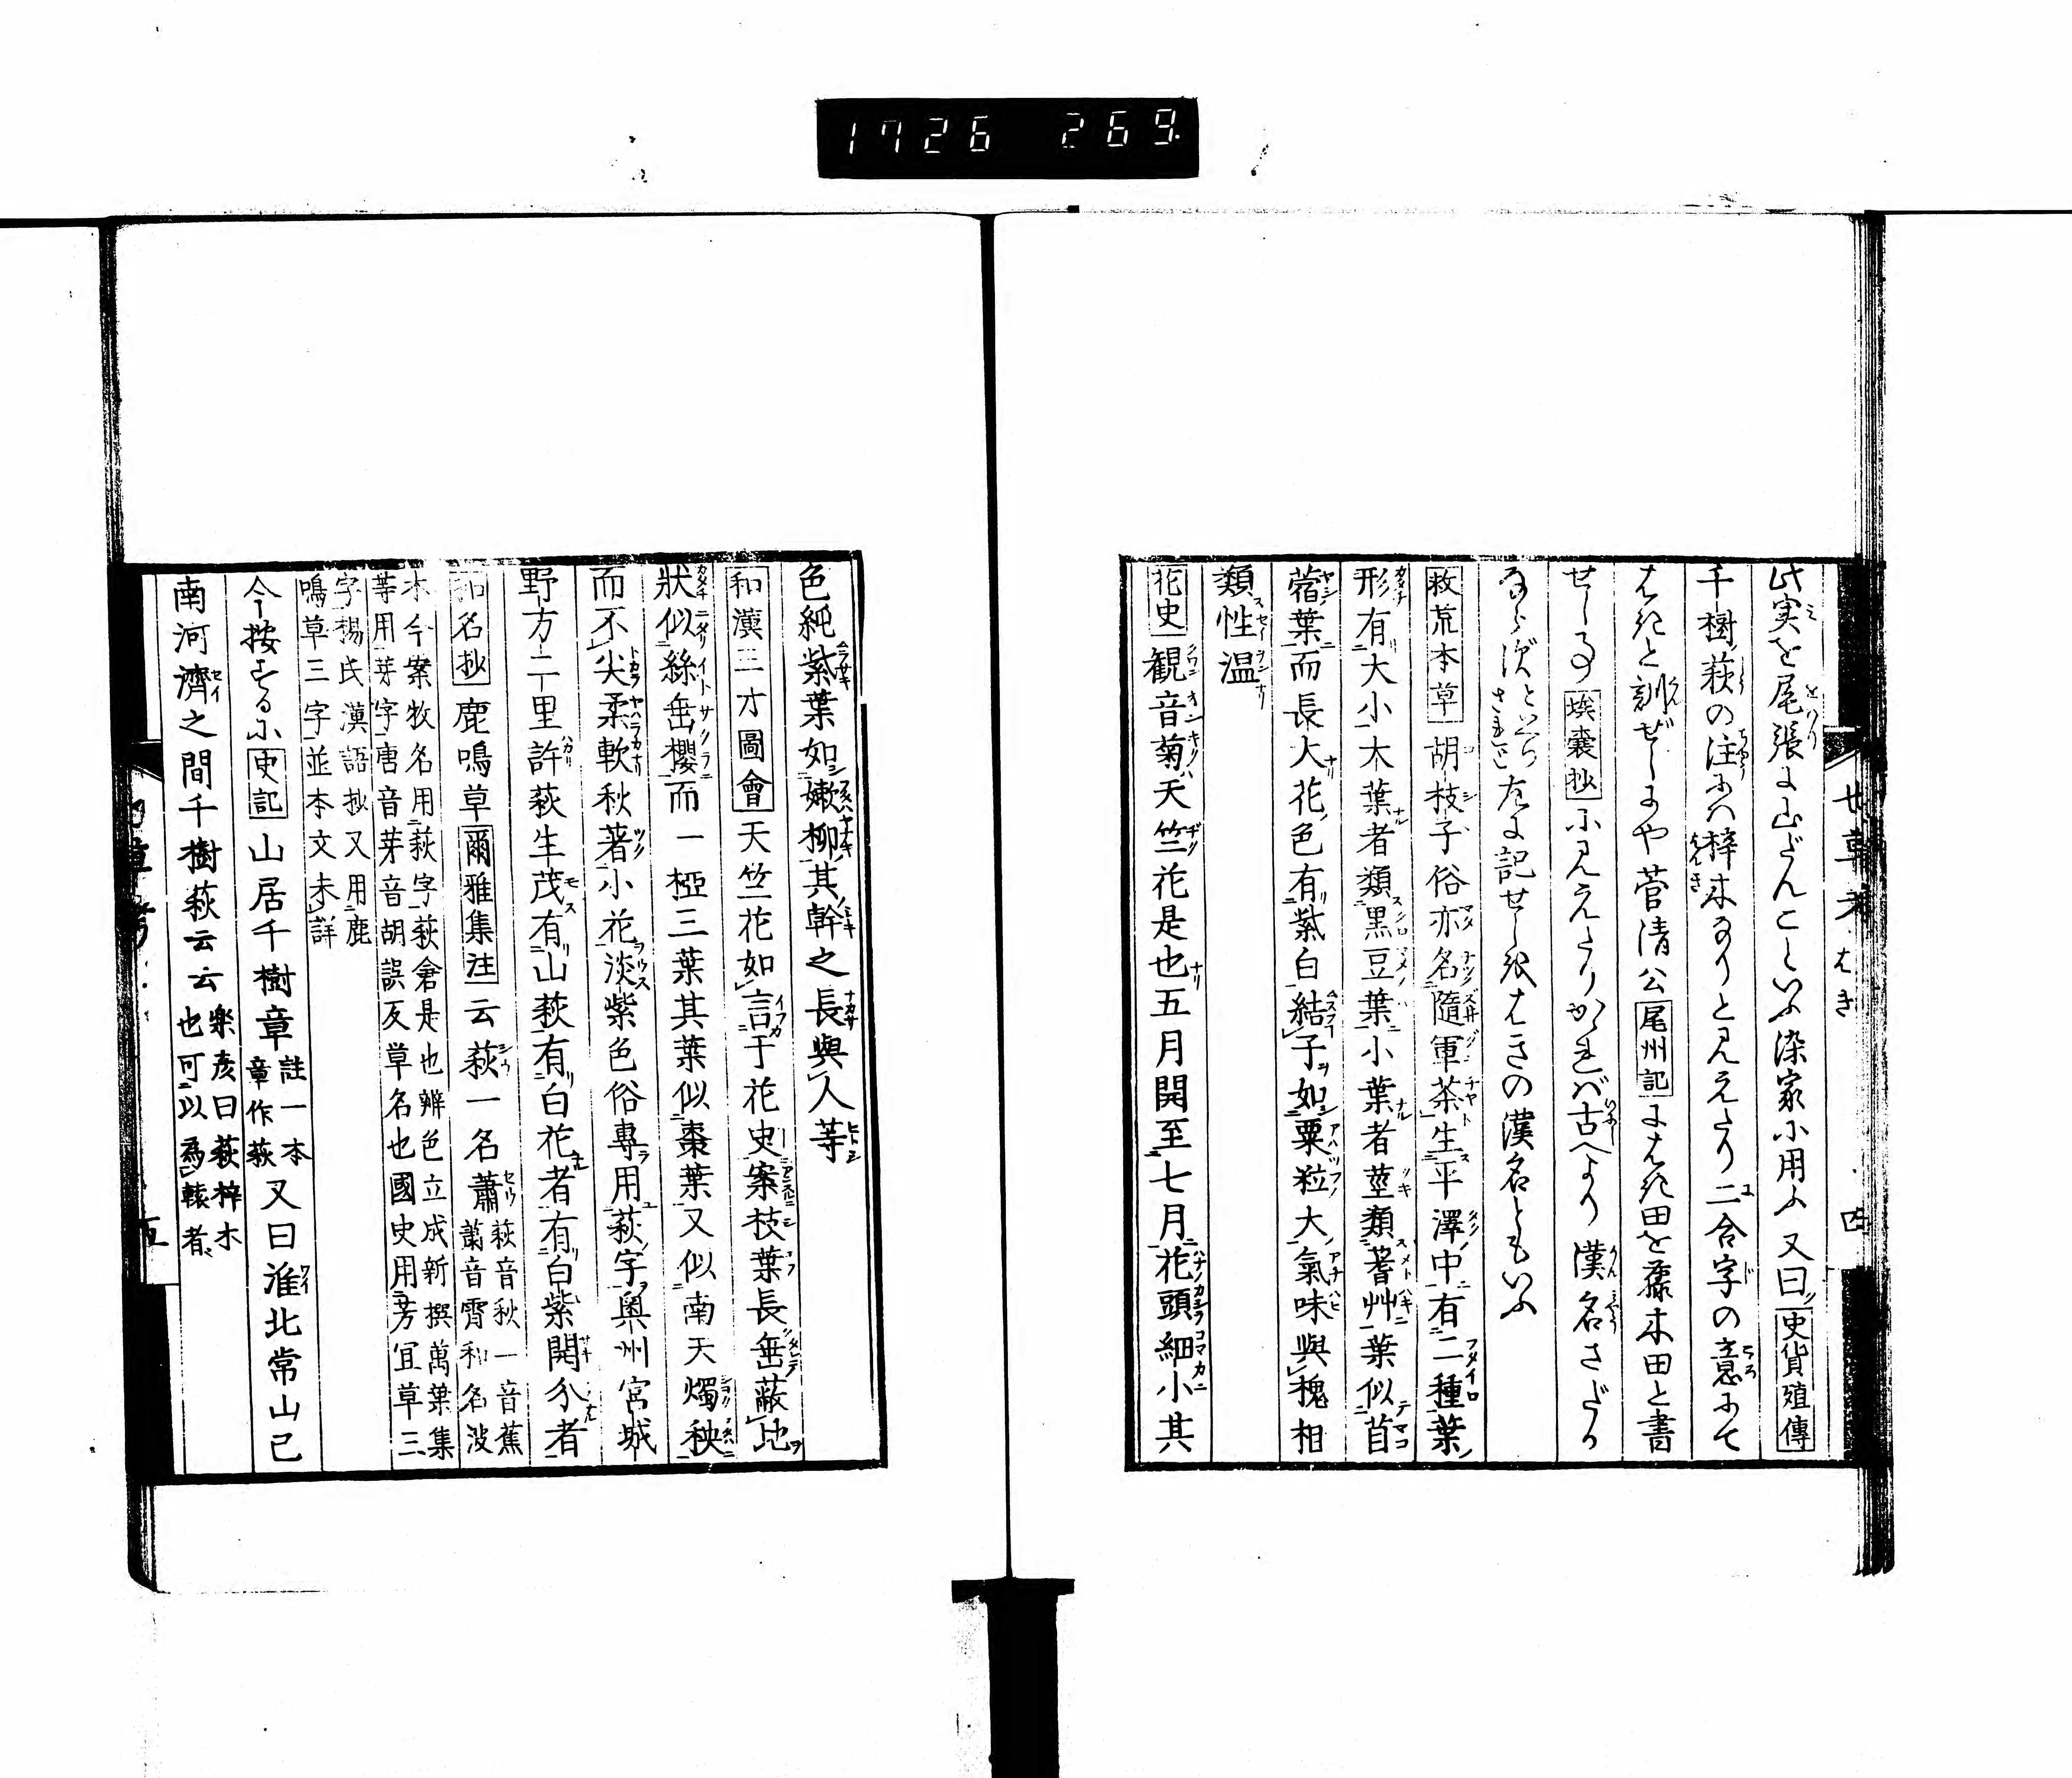 1726 269
七草考 はき 四
此実を尾張に山だんことといふ染家に用ふ又曰史貨殖傳
千樹萩の注にハ梓木なりと見えたり二合字の意にて
はきと訓ぜしにや菅清公尾州記にはき田を蘓木田と書
せし事埃嚢抄に見えたりかゝれバ古へより漢名さだか
ならず
左に記せし状はきの漢名ともいふ
救荒本草胡枝子俗亦名隨軍茶生平澤中有二種葉
形有大小大葉者類黒豆葉小葉者莖類蓍艸葉似苜
蓿葉而長大花色有紫白結子如粟粒大氣味與槐相
類性温
花史観音菊天竺花是也五月開至七月花頭細小其
色純紫葉如嫩柳其幹之長與人等
和漢三才圖會天竺花如言于花史案枝葉長垂蔽地
狀似絲垂櫻而一椏三葉其葉似棗葉又似南天燭秧
而不尖柔軟秋著小花淡紫色俗專用萩字奥州宮城
野方二里許萩生茂有山萩有白花者有白紫開分者
和名抄鹿鳴草爾雅集注云萩一名蕭萩音秋一音蕉
蕭音霄和名波
木今案牧名用萩字萩倉是也辨色立成新撰萬葉集
等用芽字唐音芽音胡誤反草名也國史用芳宜草三
字楊氏漢語抄又用鹿
鳴草三字並本文未詳
今按ずるに史記山居千樹章註一本
章作萩又曰淮北常山已
南河濟之間千樹萩云云楽彦曰萩梓木
也可以為轅者
五